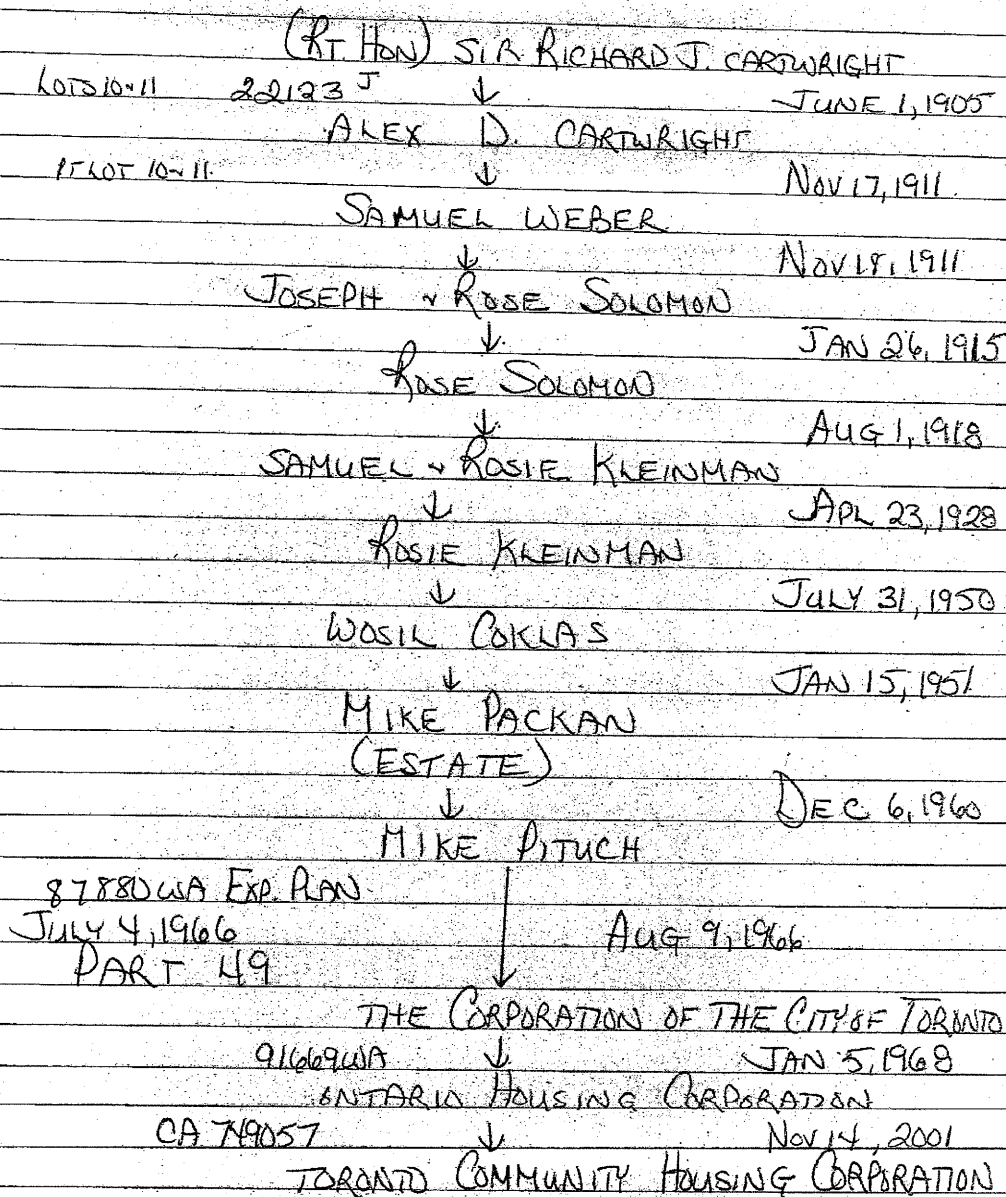 (RT. HON) SIR RICHARD J. CARTWRIGHT
LOTS 10 & 11 22123 J ↓ JUNE 1, 1905
ALEX D. CARTWRIGHT
PT LOT 10 & 11. ↓ NOV 17, 1911.
SAMUEL WEBER
↓ NOV 18, 1911
JOSEPH & ROSE SOLOMON
↓ JAN 26, 1915
ROSE SOLOMON
↓ AUG 1, 1918
SAMUEL & ROSIE KLEINMAN
↓ APL 23, 1928
ROSIE KLEINMAN
↓ JULY 31, 1950
WOSIL COKLAS
↓ JAN 15, 1951
MIKE PACKAN
(ESTATE)
↓ DEC 6, 1960
MIKE PITUCH
87880WA EXP. PLAN
JULY 4, 1966 AUG 9, 1966
PART 49
THE CORPORATION OF THE CITY OF TORONTO
91669WA ↓ JAN 5, 1968
ONTARIO HOUSING CORPORATION
CA 749057 ↓ NOV 14, 2001
TORONTO COMMUNITY HOUSING CORPORATION